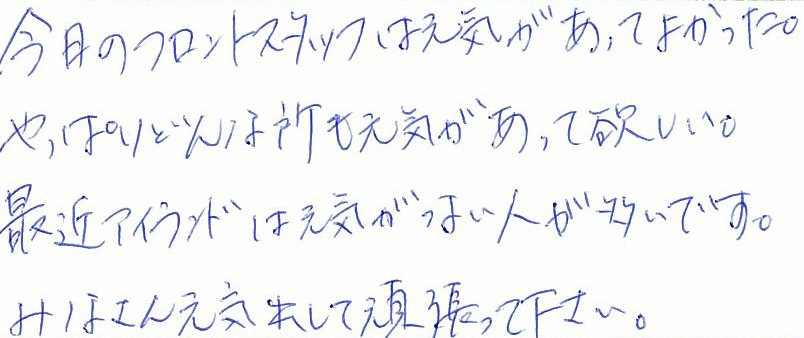 今日のフロントスタッフは元気があってよかった。
やっぱりどんな所も元気があって欲しい。
最近アイランドは元気がない人が多いです。
みなさん元気出して頑張って下さい。